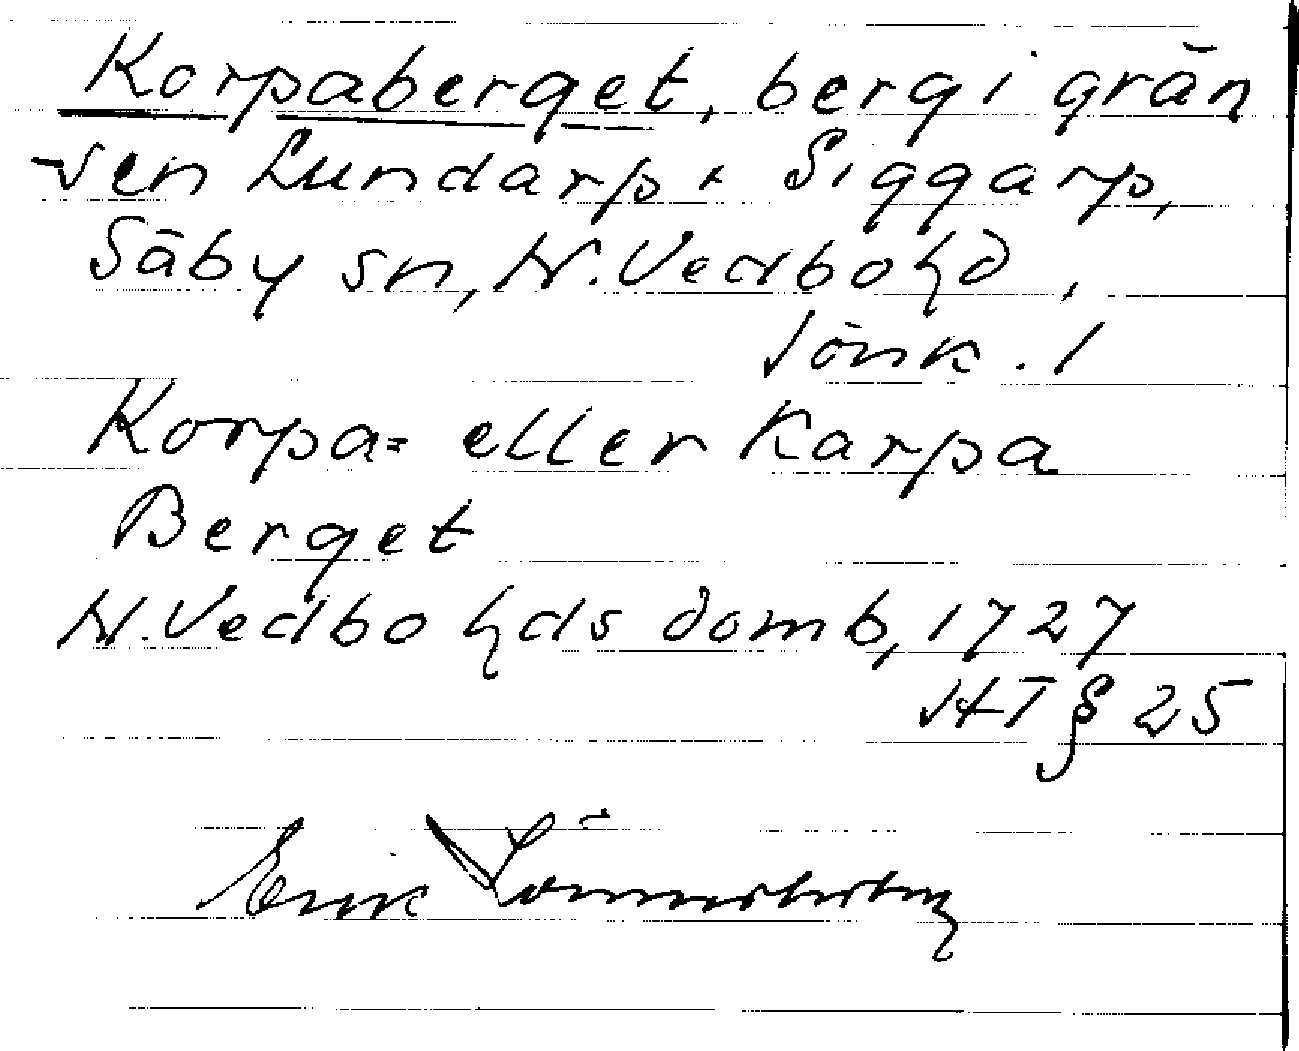 Korpaberget, berg i grän
-sen Lundarp x Siggarp,
Säby sn, N. Vedbo hd,
Jönk. l
Korpa= eller Karpa
Berget
N. Vedbo hds domb, 1727
HT § 25
Erik